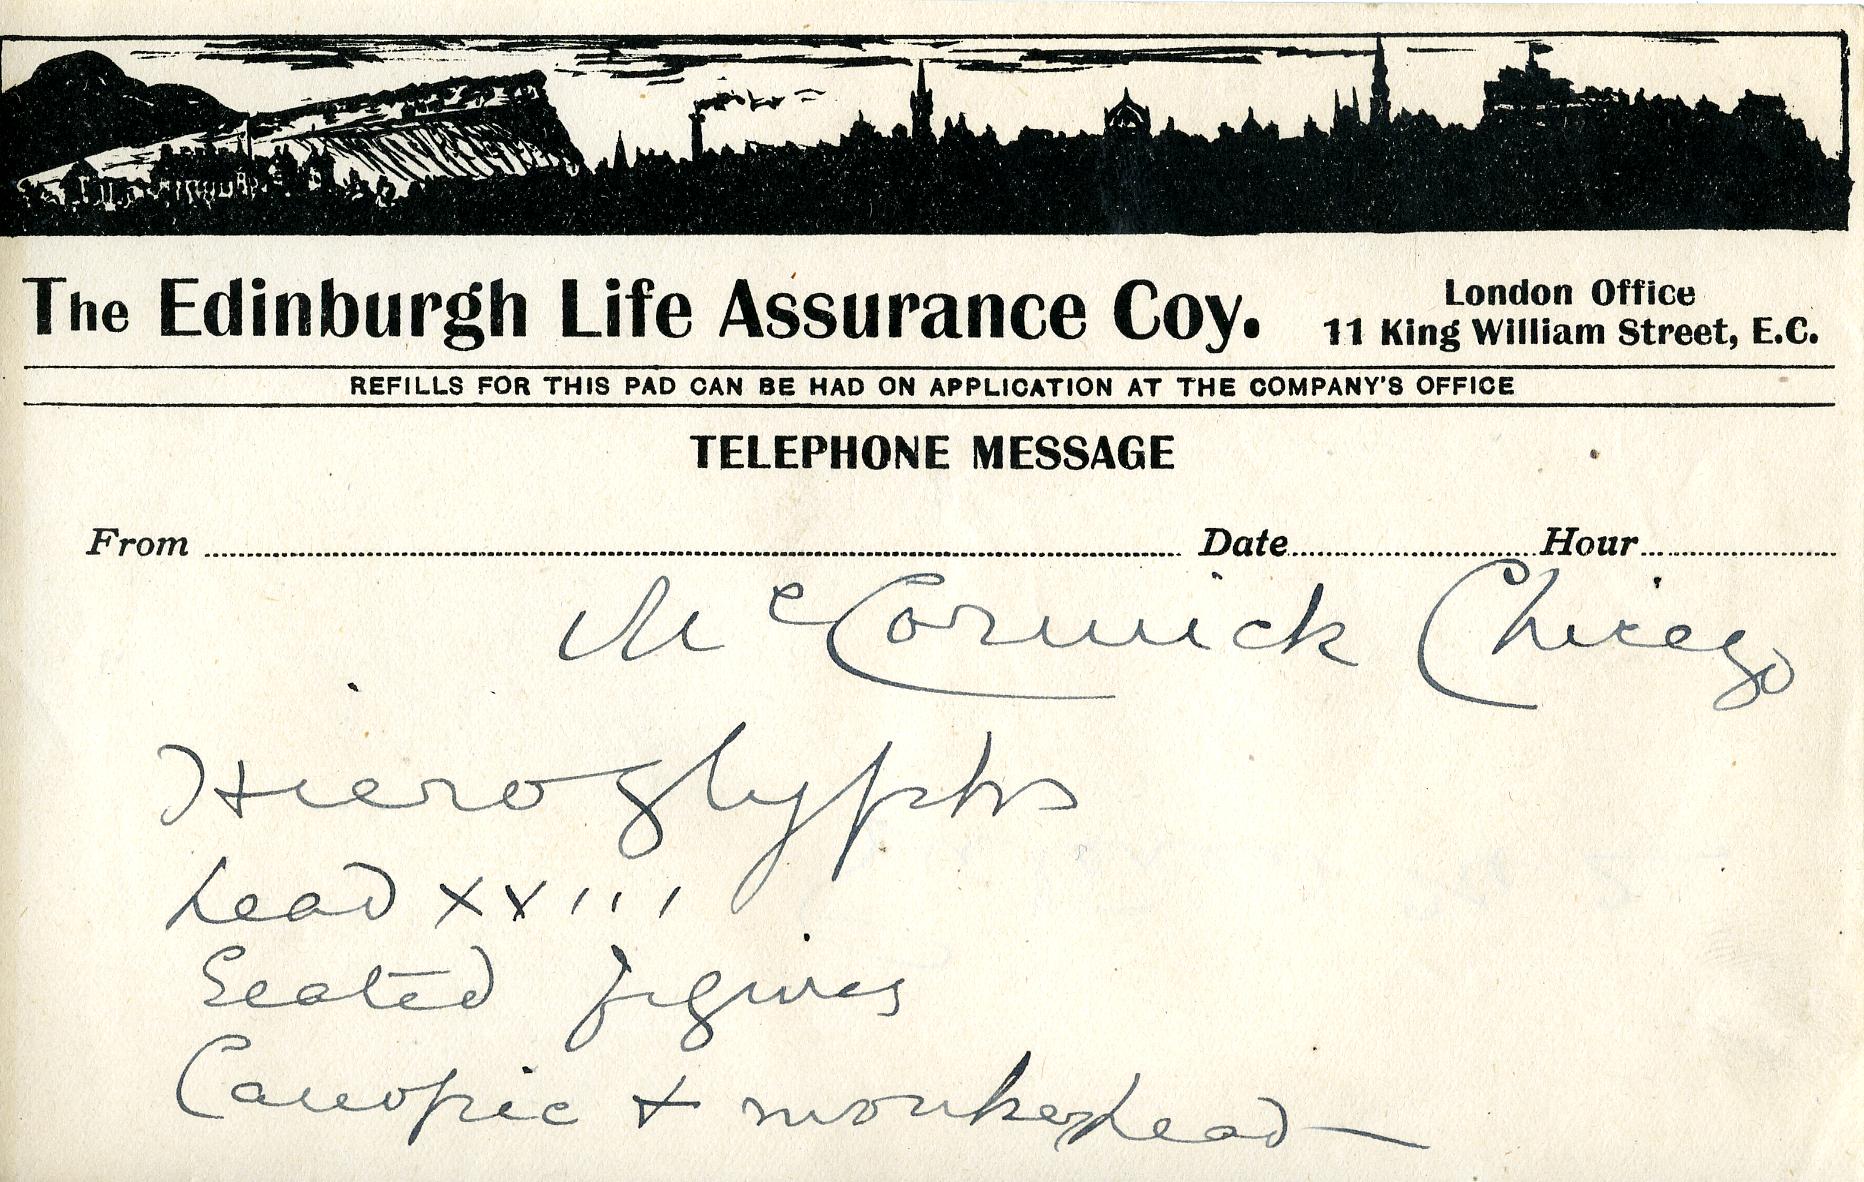 The Edinburgh Life Assurance Coy.
London Office
11 King William Street, E.C.
REFILLS FOR THIS PAD CAN BE HAD ON APPLICATION AT THE COMPANY'S OFFICE
TELEPHONE MESSAGE
From Date Hour
McCormick Chicago
Hieroglyphs
head XXIII
Seated figures
Canopic + monkey head